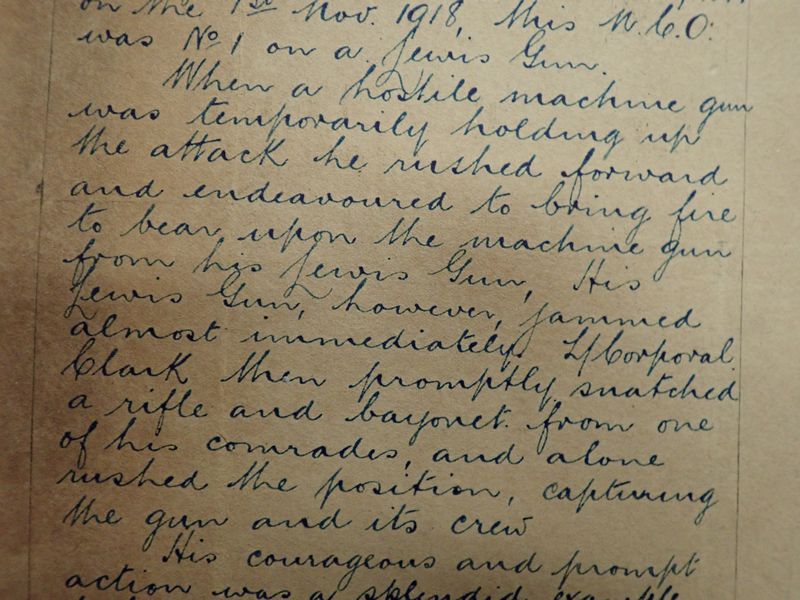 on the 1st Nov. 1918, this N.C.O.
was No 1 on a Lewis Gun.
When a hostile machine gun
was temporarily holding up
the attack he rushed forward
and endeavoured to bring fire
to bear upon the machine gun
from his Lewis Gun, His
Lewis Gun, however, jammed
almost immediately. L/Corporal
Clark then promptly snatched
a rifle and bayonet from one
of his comrades, and alone
rushed the position, capturing
the gun and its crew
His courageous and prompt
action was a splendid example